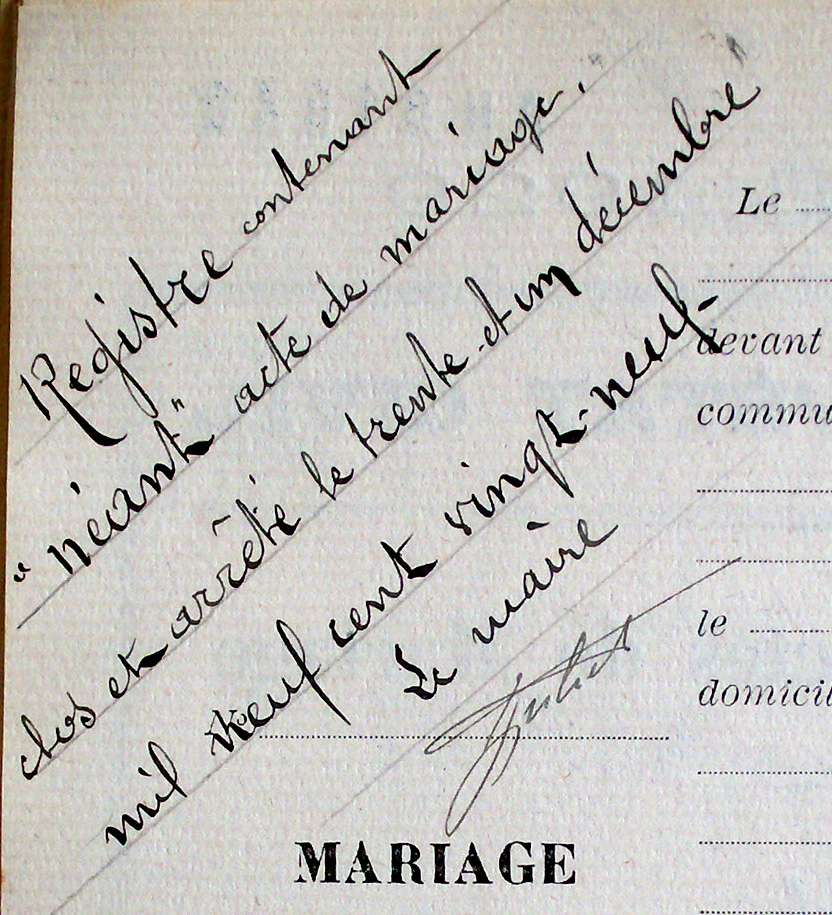 Registre contenant
"néant" acte de mariage.
clos et arrêté le trente-et-un décembre
mil neuf cent vingt-neuf.
Le maire
MARIAGE
Le
devant
commu
le
domicil